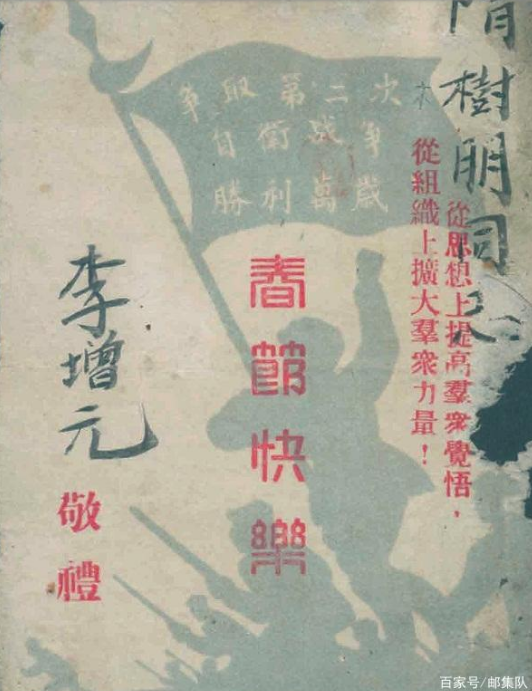 隋樹朋同志
從思想上提高羣衆覺悟，
從組織上擴大羣衆力量！
爭取第二次
自衛战爭
勝利萬歲
春節快樂
李增元
敬禮
百家号/邮集队